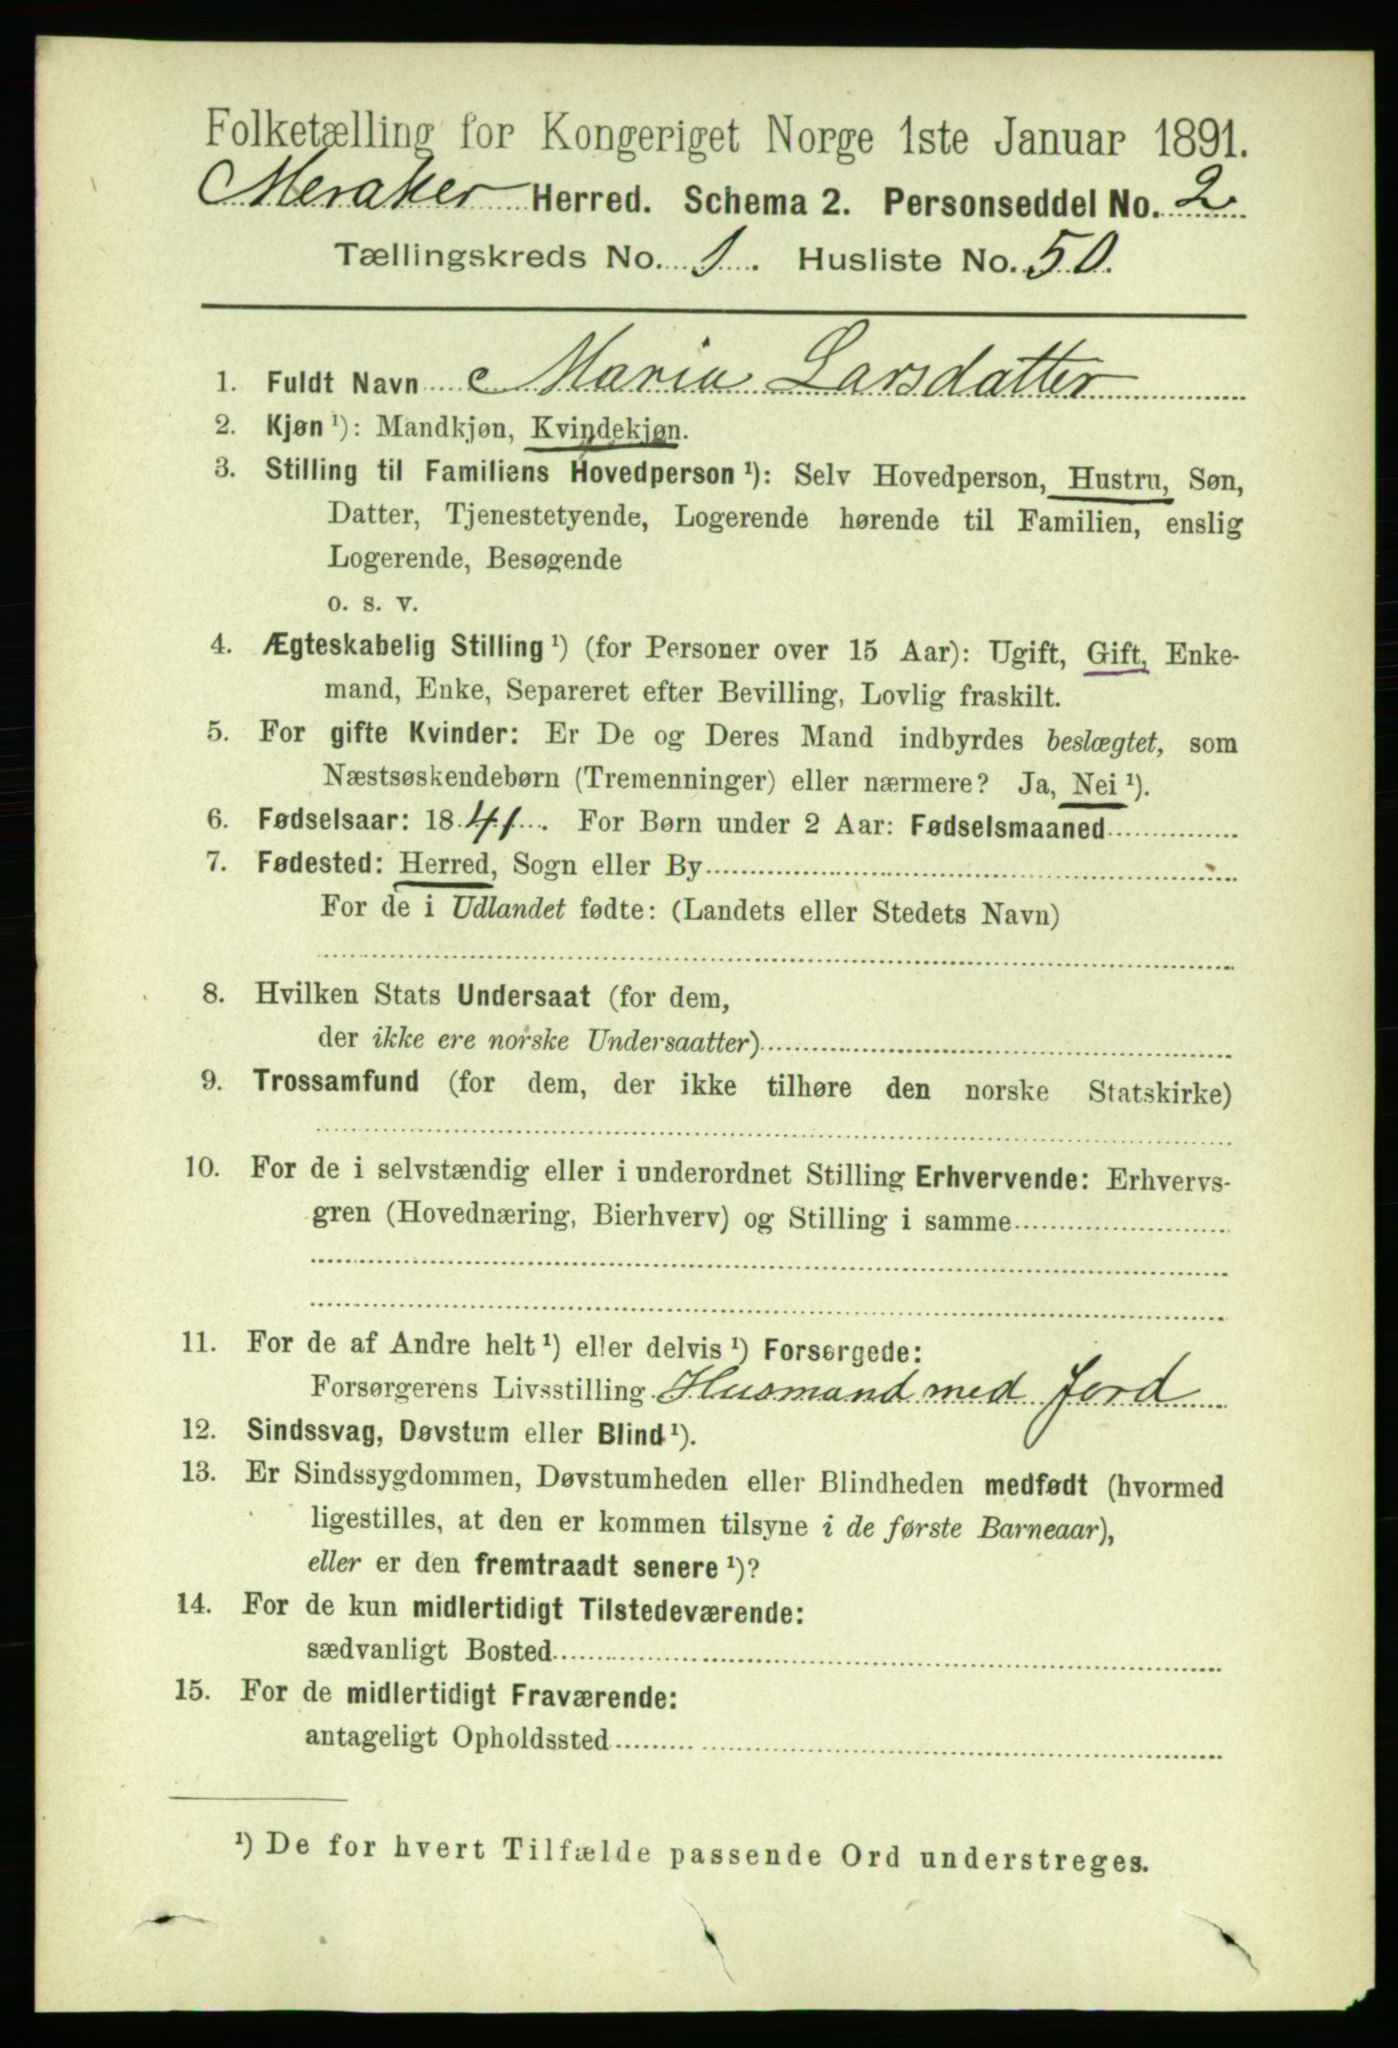 Folketælling for Kongeriget Norge 1ste Januar 1891.
Meraker Herred. Schema 2. Personseddel No. 2
Tællingskreds No. 1. Husliste No. 50.
1. Fuldt Navn Maria Larsdatter
2. Kjøn ¹): Mandkjøn, Kvindekjøn.
3. Stilling til Familiens Hovedperson ¹): Selv Hovedperson, Hustru, Søn,
Datter, Tjenestetyende, Logerende hørende til Familien, enslig
Logerende, Besøgende
o. s. v.
4. Ægteskabelig Stilling ¹) (for Personer over 15 Aar): Ugift, Gift, Enke-
mand, Enke, Separeret efter Bevilling, Lovlig fraskilt.
5. For gifte Kvinder: Er De og Deres Mand indbyrdes beslægtet, som
Næstsøskendebørn (Tremenninger) eller nærmere? Ja, Nei ¹).
6. Fødselsaar: 1841. For Børn under 2 Aar: Fødselsmaaned
7. Fødested: Herred, Sogn eller By
For de i Udlandet fødte: (Landets eller Stedets Navn)
8. Hvilken Stats Undersaat (for dem,
der ikke ere norske Undersaatter)
9. Trossamfund (for dem, der ikke tilhøre den norske Statskirke)
10. For de i selvstændig eller i underordnet Stilling Erhvervende: Erhvervs-
gren (Hovednæring, Bierhverv) og Stilling i samme
11. For de af Andre helt ¹) eller delvis ¹) Forsørgede:
Forsørgerens Livsstilling Husmand med Jord
12. Sindssvag, Døvstum eller Blind ¹).
13. Er Sindssygdommen, Døvstumheden eller Blindheden medfødt (hvormed
ligestilles, at den er kommen tilsyne i de første Barneaar),
eller er den fremtraadt senere ¹)?
14. For de kun midlertidigt Tilstedeværende:
sædvanligt Bosted
15. For de midlertidigt Fraværende:
antageligt Opholdssted
¹) De for hvert Tilfælde passende Ord understreges.